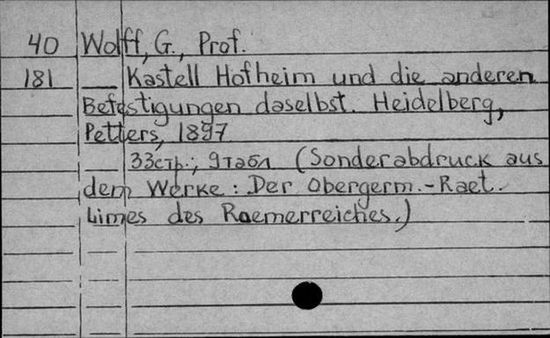 40 Wolff, G., Prof.
181 Kastell Hofheim und die anderen
Befestigungen daselbst. Heidelberg,
Petters, 1897
33стр.; 9табл (Sonderabdruck aus
dem Werke: Der obergerm.-Raet.
Limes des Roemerreiches.)